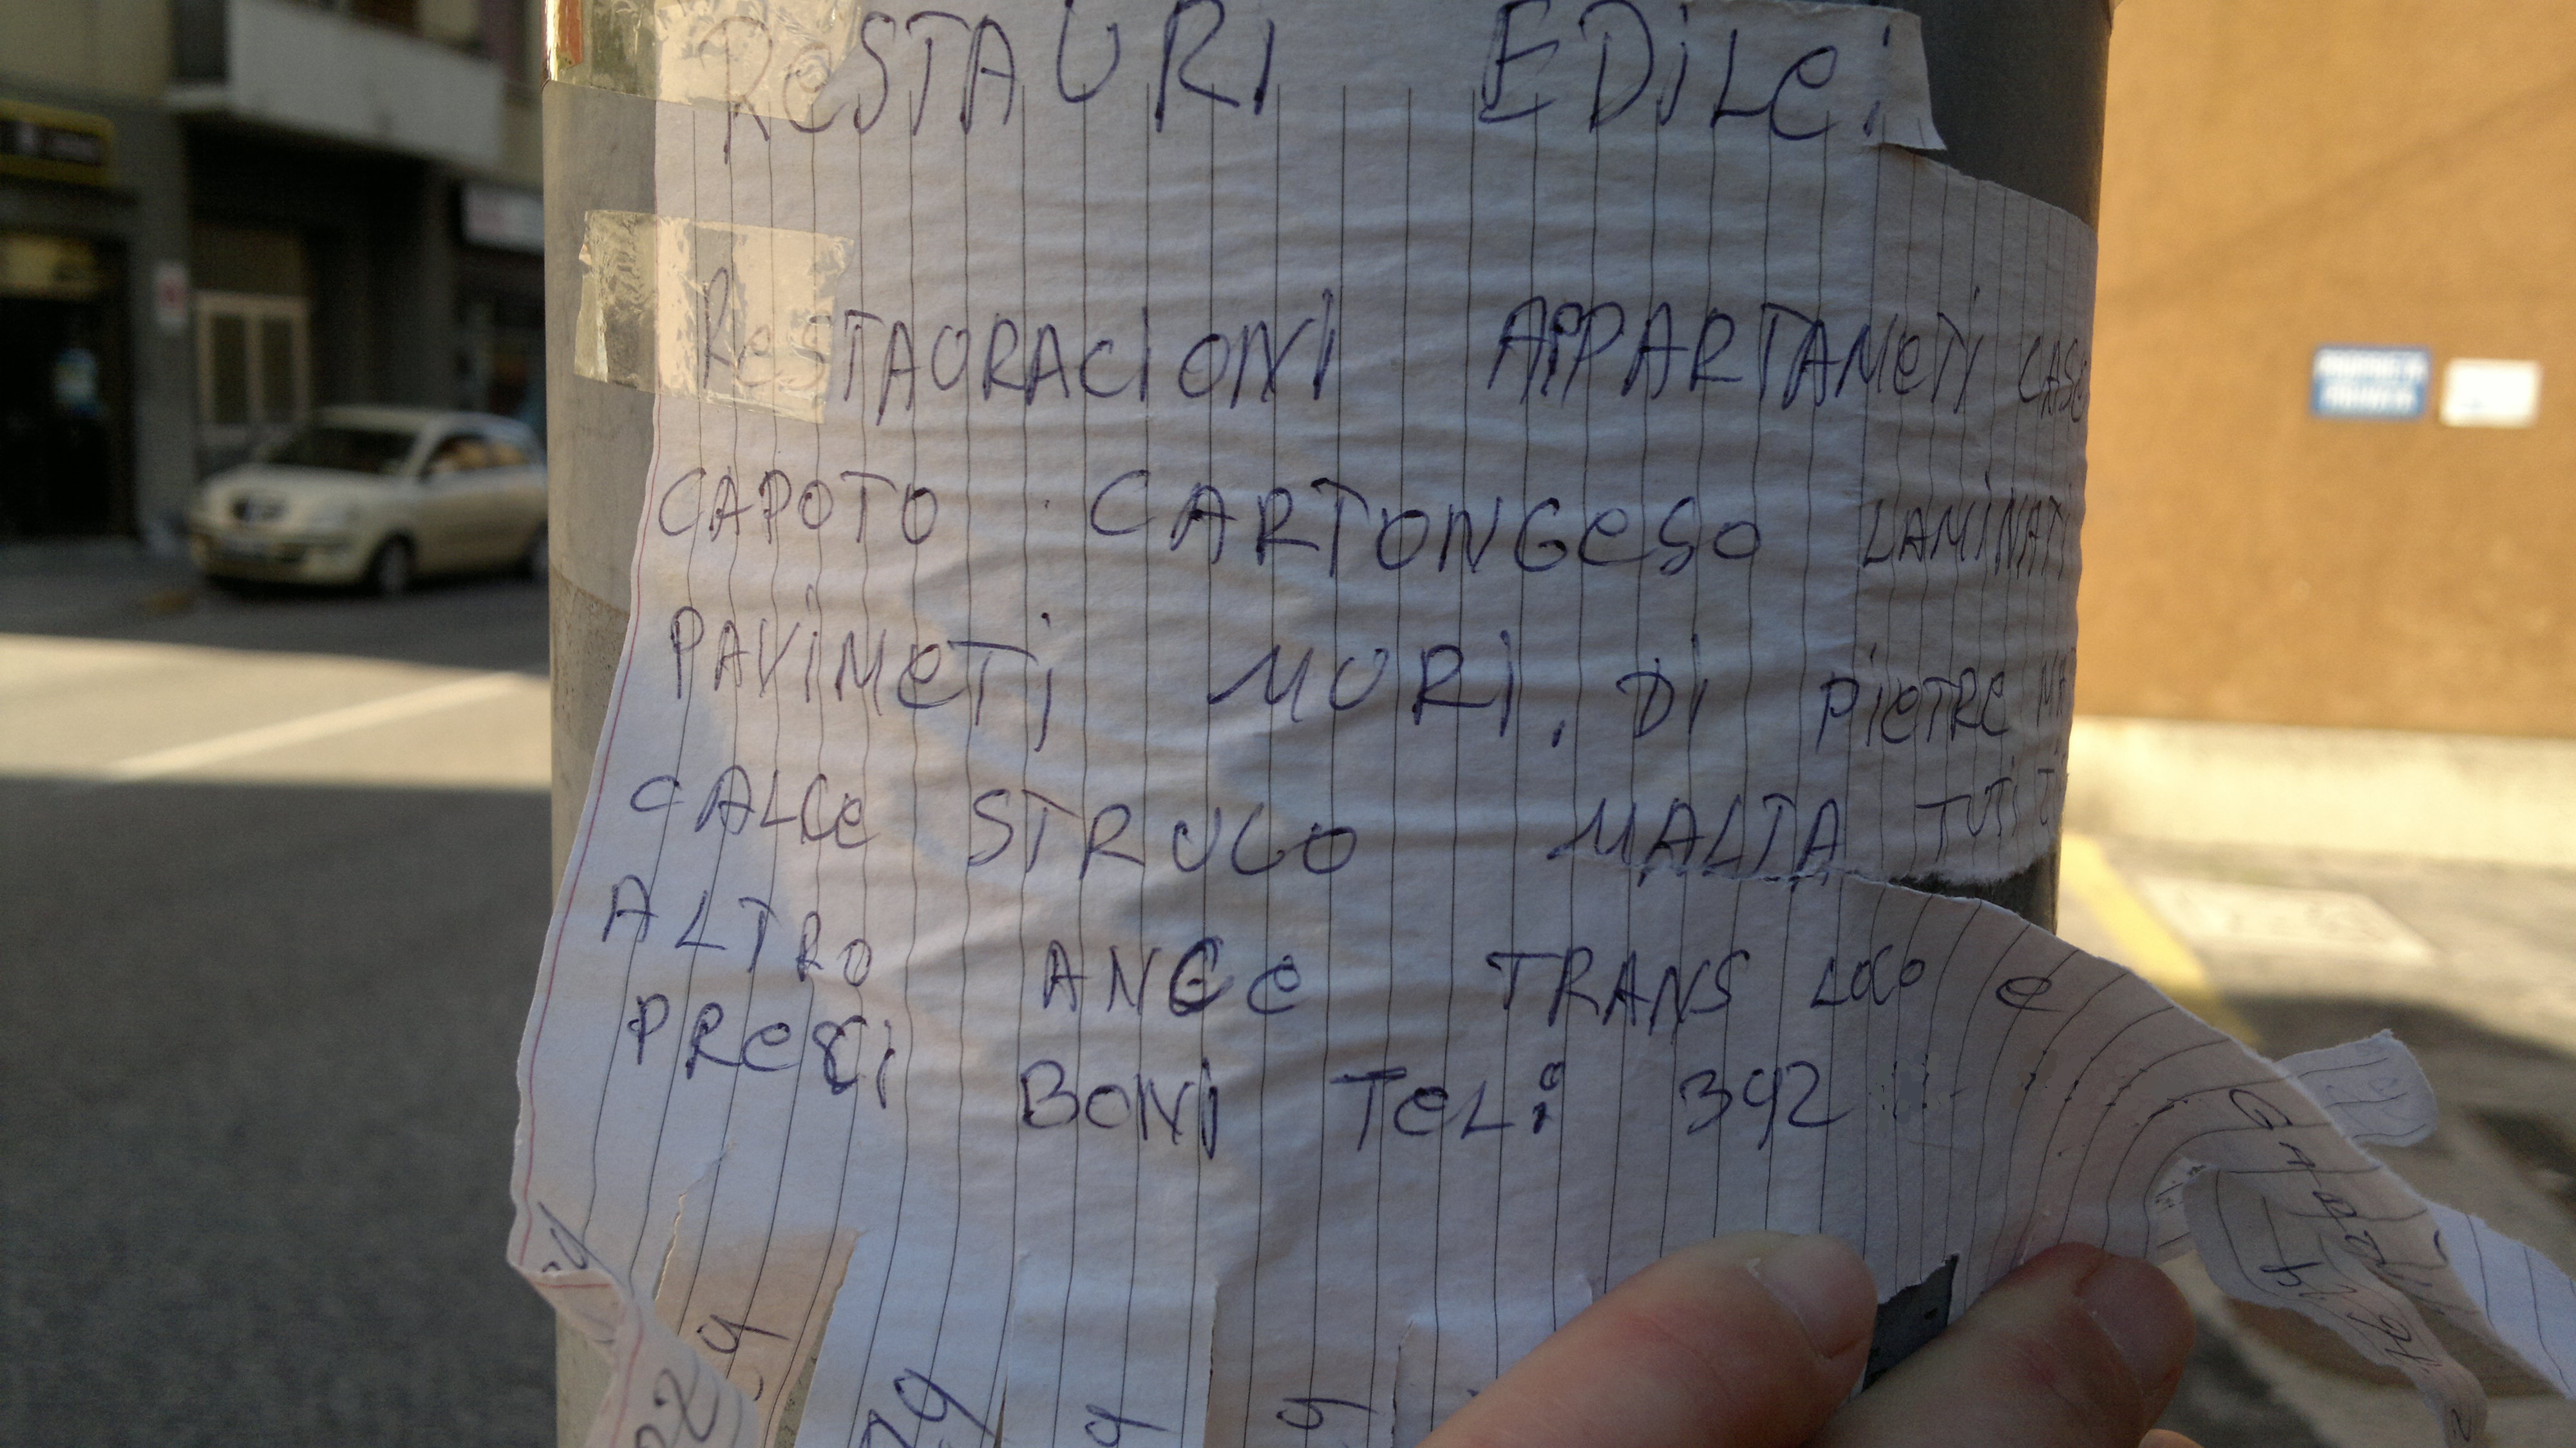 ReSTAURI EDiLei
ReSTAURACiONI APPARTAMeTi CASe
CAPOTO CARTONGeSo LAMiNATi
PAViMeTi MURi, Di PieTRe
CALCe STRUCO MALTA TUTi
ALTRO ANCe TRANSLOCO e
PReZi BONi TeL: 392